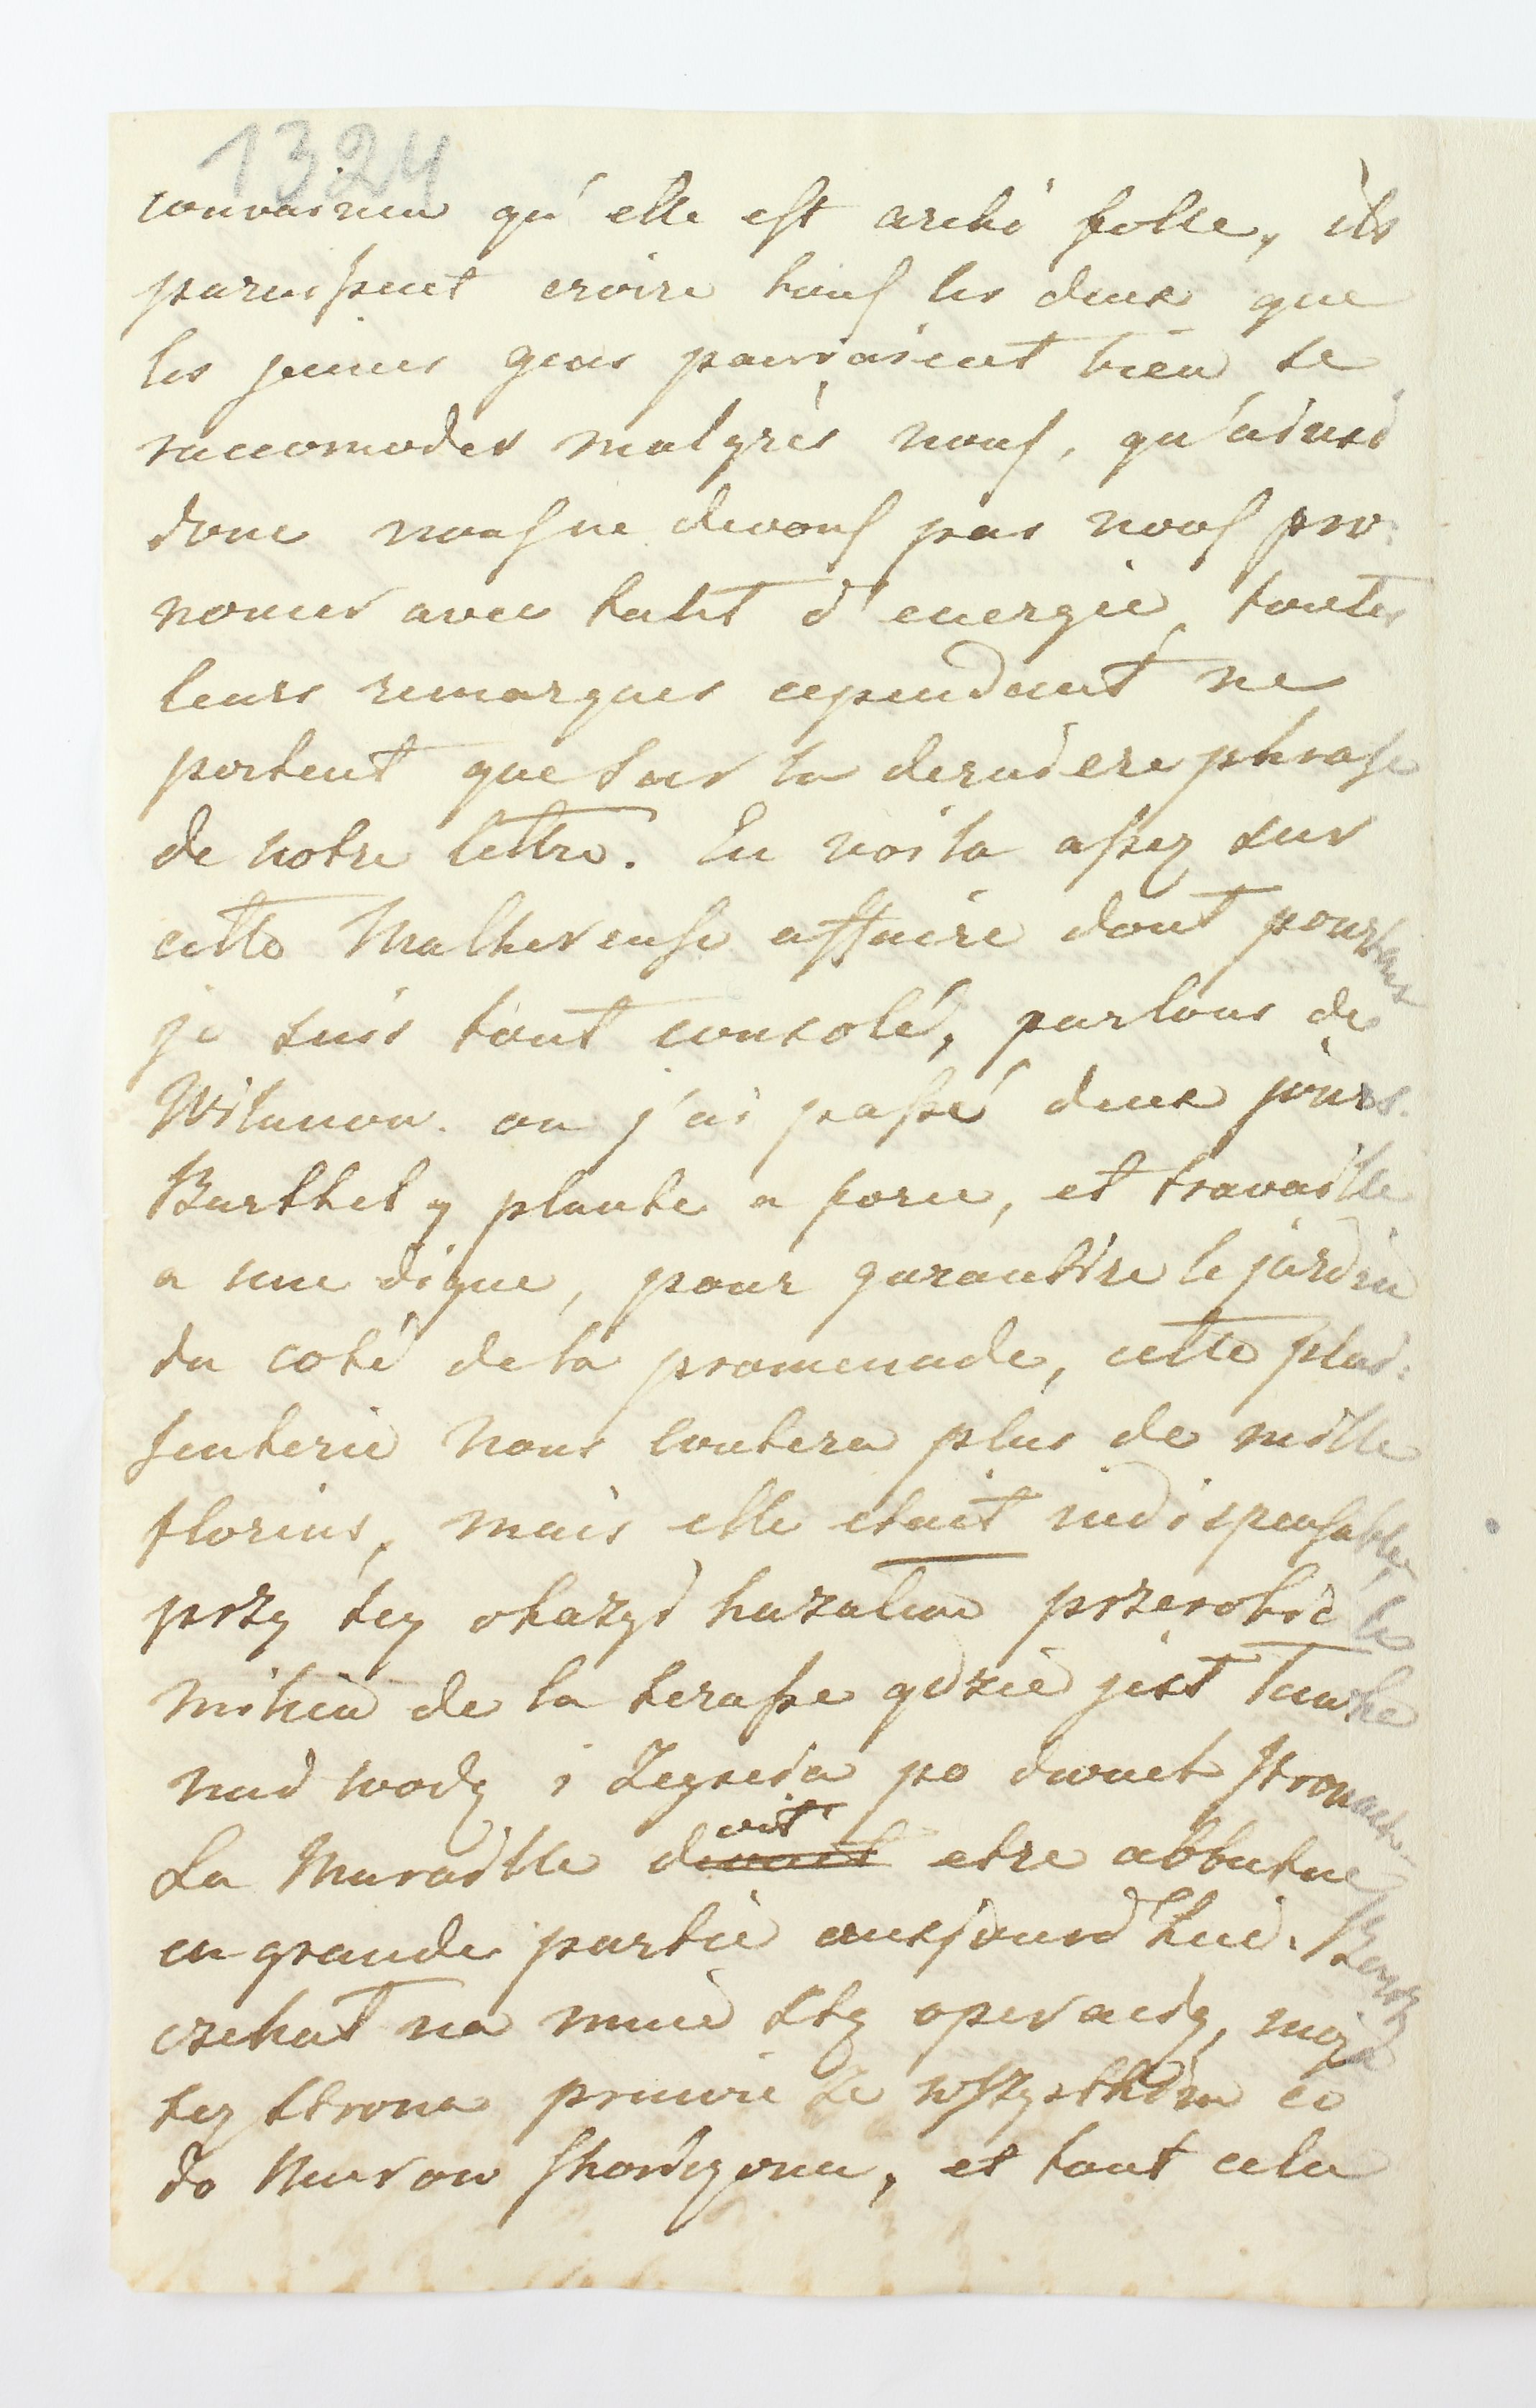 1324
convaincu qu'elle est archi folle, ils
paraissent croire tous les deux que
les jeunes gens pourraient bien se
raccomoder malgrès nous, qu'ainsi
donc nous ne devons pas nous pro:
noncer avec tant d'energie, toutes
leurs remarques cependant ne
portent que sur la derniere phrase
de notre lettre. En voila assez sur
cette Malhereuse affaire dont pourtant
je suis tout consolé, parlons de
Wilanow. ou j'ai passé deux jours.
Barthel y plante a force, et travaille
a une digue, pour garantire le jardin
du coté de la promenade, cette plai:
senterie nous coutera plus de mille
florins, mais elle etait indispensable,
przy tey okazyi kazalem przerobić le
milieu de la terasse gdzie jest Lawka
nad wodą i Zeyscia po dwuch stronach.
La Muraille devait vit etre abbatue
en grande partie auxjourd'hui.
czekał na mnie z tą operacyą, moja
tey strona prawie ze wszystkim co
do Murow skonczona, et tout cela